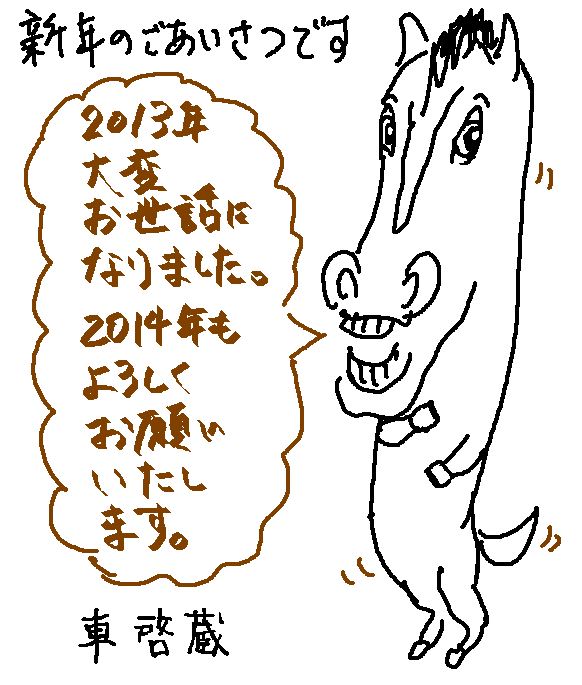 新年のごあいさつです
2013年
大変
お世話に
なりました。
2014年も
よろしく
お願い
いたし
ます。
車啓蔵